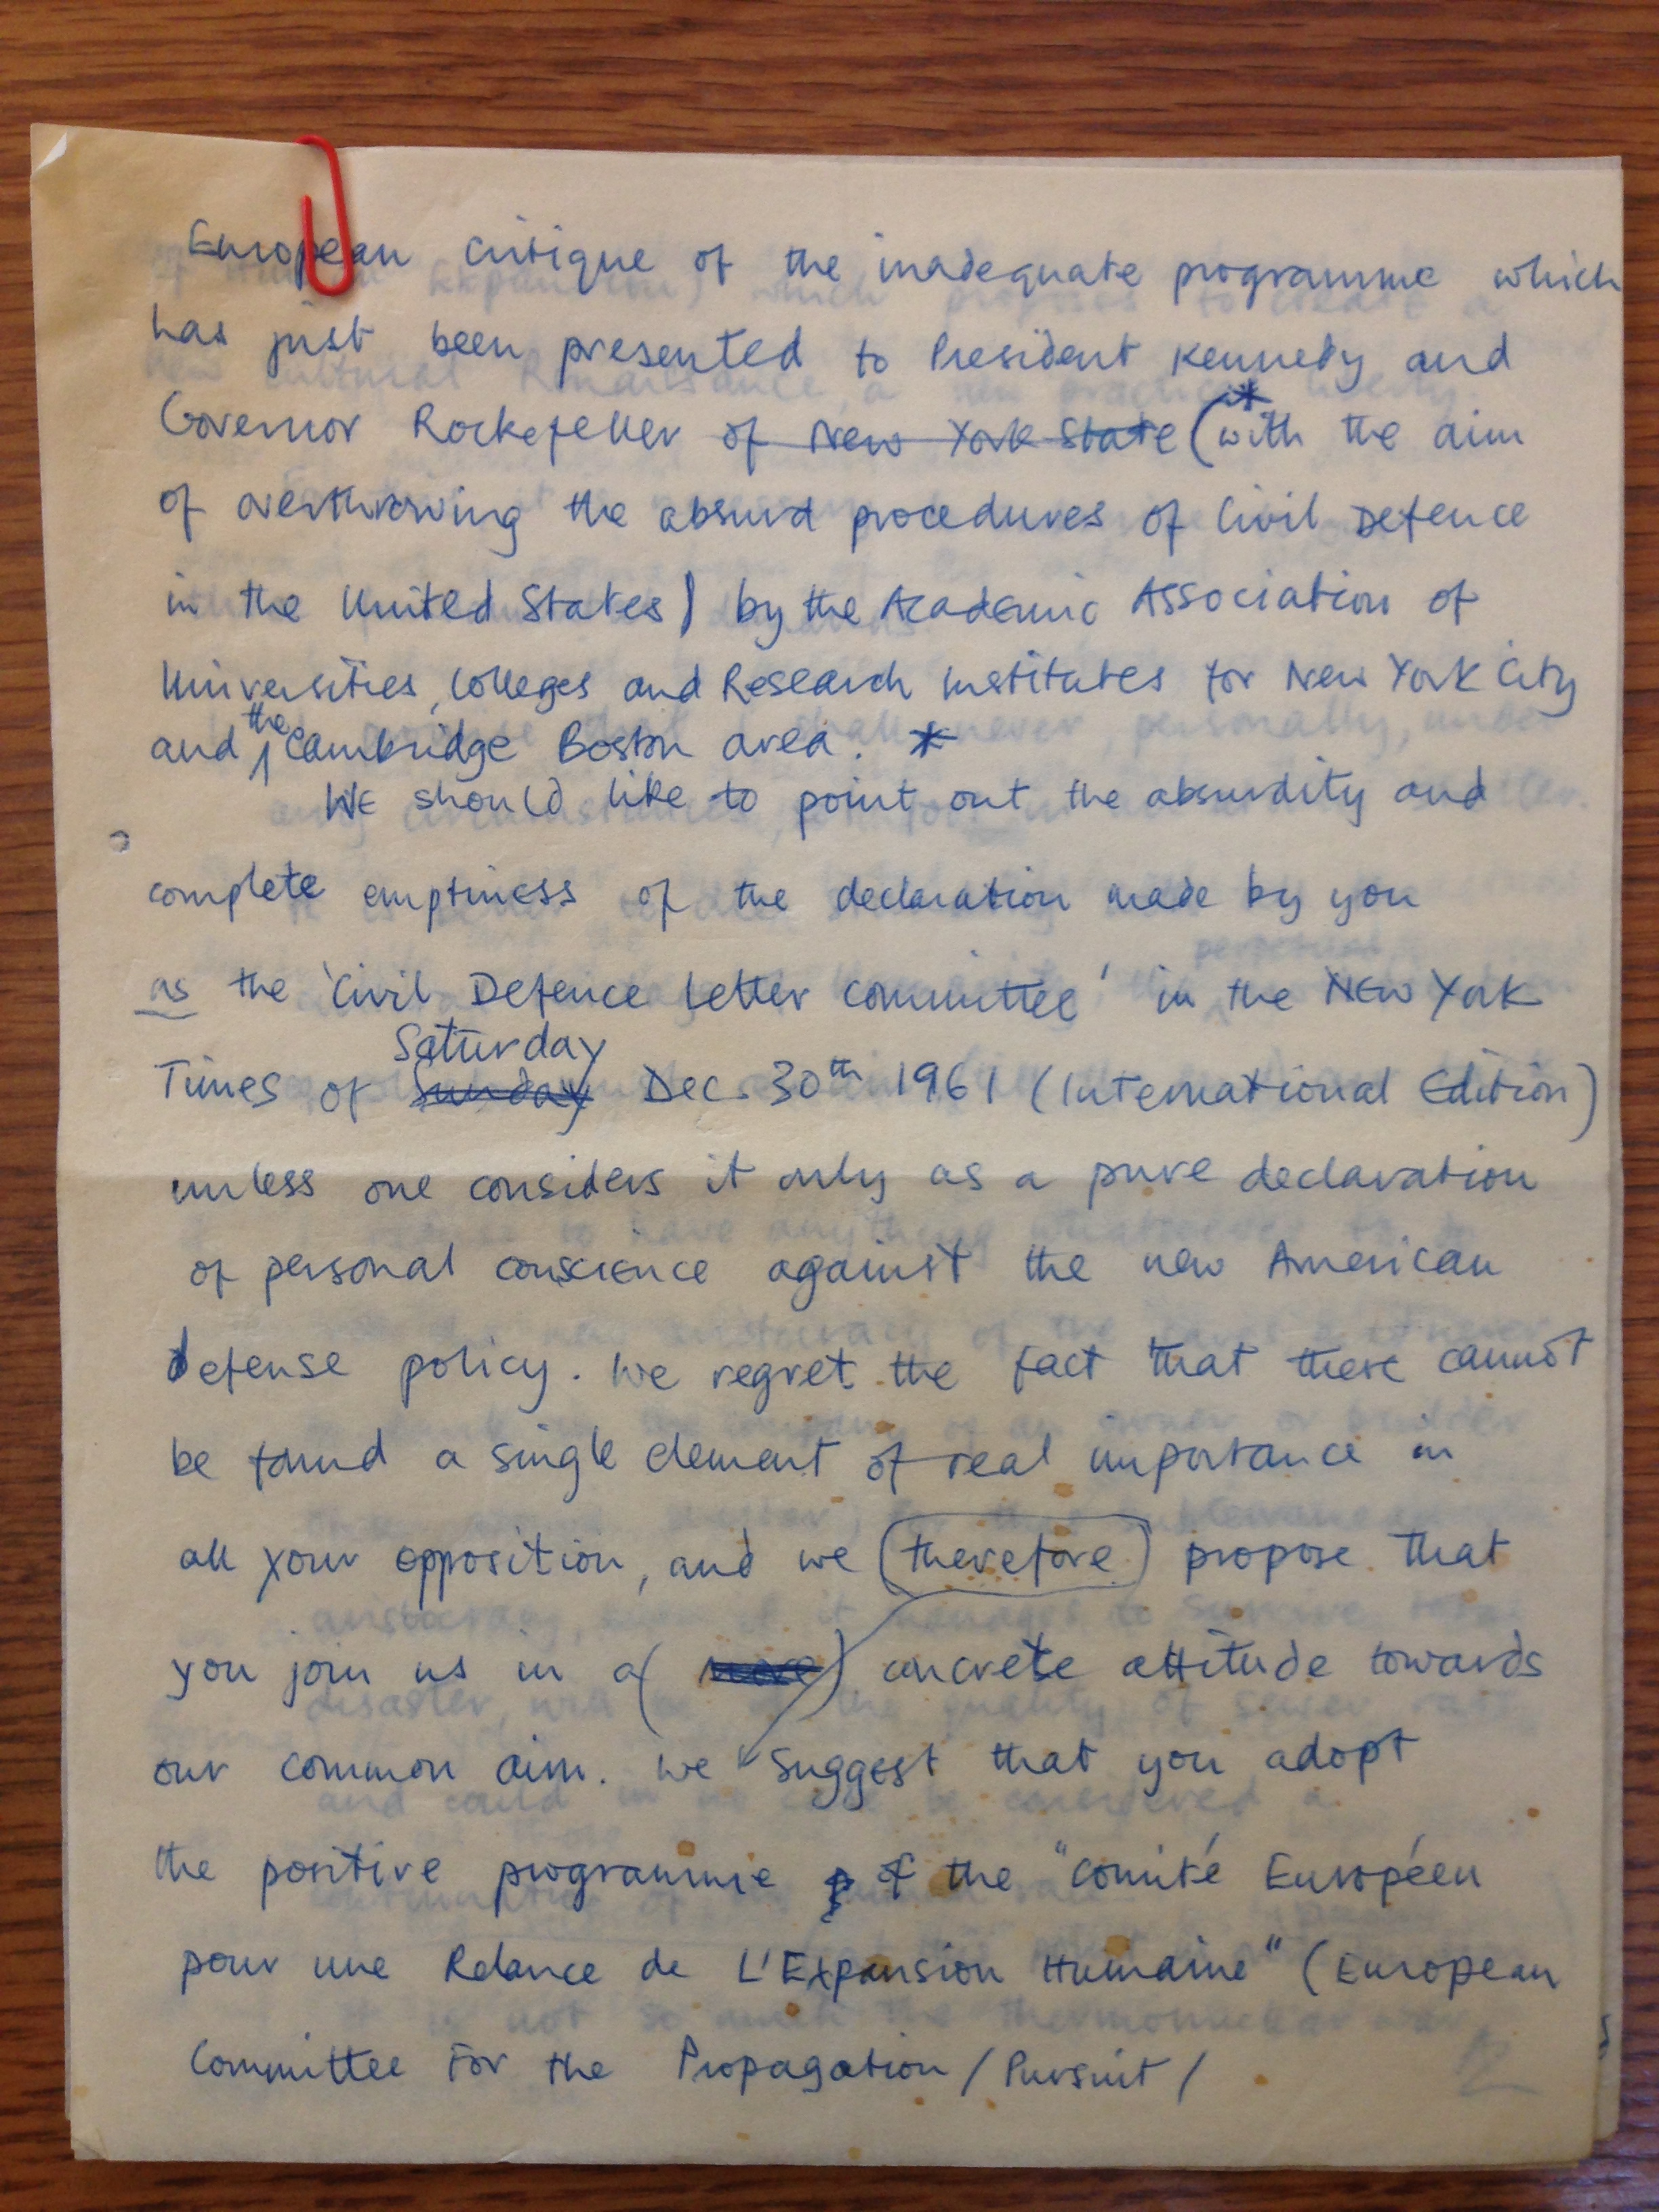 European critique of the inadequate programme which
has just been presented to President Kennedy and
Governor Rockefeller of New York State (* with the aim
of overthrowing the absurd procedures of Civil Defence
in the United States) by the Academic Association of
Universities, Colleges and Research Institutes for New York City
the
and Cambridge Boston area. *
We should like to point out the absurdity and
complete emptiness of the declaration made by you
as the 'Civil Defence Letter Committee' in the New York
Saturday
Times of Sunday Dec. 30th 1961 (International Edition)
unless one considers it only as a pure declaration
of personal conscience against the new American
defense policy. We regret the fact that there cannot
be found a single element of real importance in
all your opposition, and we (therefore) propose that
you join us in a (more) concrete attitude towards
our common aim. We suggest that you adopt
the positive programme of the "Comité Européen
pour une Relance de L'Expansion Humaine" (European
Committee For the Propagation / Pursuit /
2